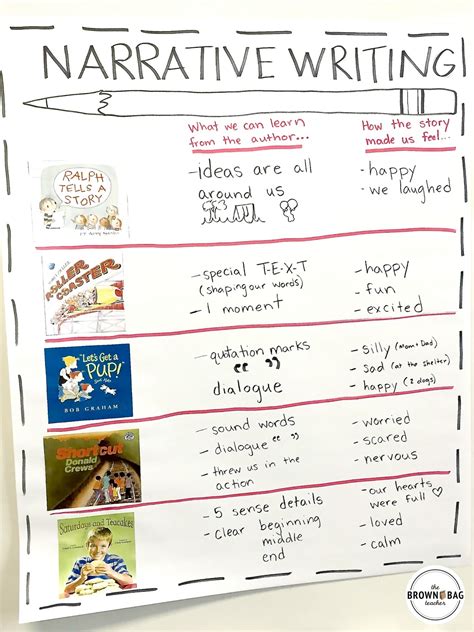 NARRATIVE WRITING
What we can learn
from the author...
How the story
made us feel...
RALPH
TELLS A
STORY
-ideas are all
around us
-happy
-we laughed
ROLLER
COASTER
-special T-E-X-T
(shaping our words)
-1 moment
-happy
-fun
-excited
"Let's Get a
PUP!"
BOB GRAHAM
-qutation marks
" "
dialogue
-silly (mom + Dad)
-sad (at the shelter)
-happy (2 dogs)
Shortcut
Donald
Crews
-sound words
-dialogue " "
-threw us in the
action
-worried
-scared
-nervous
Saturdays and Teacakes
-5 sense details
-clear beginning
middle
end
-our hearts
were full
-loved
-calm
the
BROWN BAG
teacher